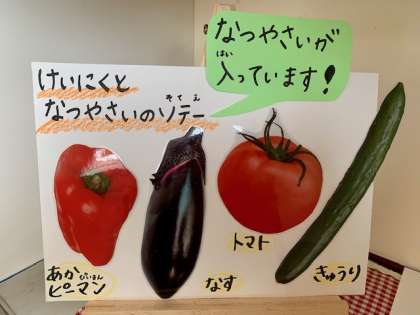 なつやさいが
はい
入っています!
けいにくと
そてえ
なつやさいのソテー
トマト
あか
ぴいまん
ピーマン
なす
きゅうり